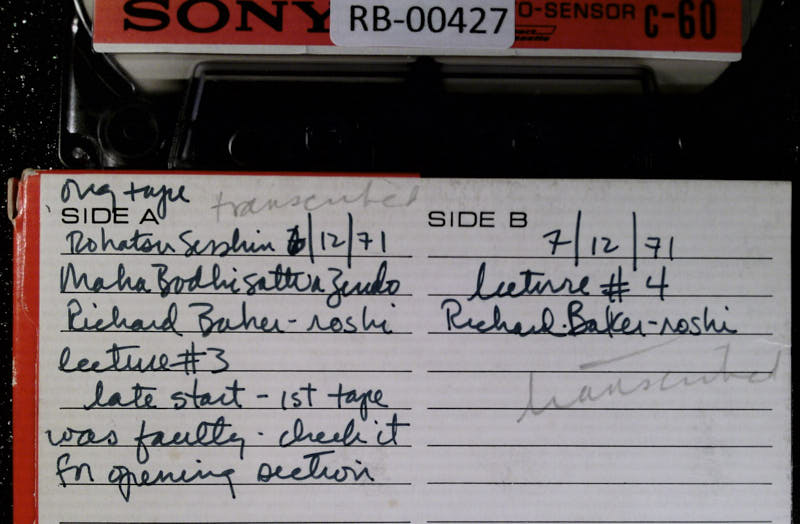 SONY
RB-00427
O-SENSOR C-60
orig tape
transcribed
SIDE A
Rohatsu Sesshin 6/12/71
Maha Bodhisattva Zendo
Richard Baker-roshi
lecture #3
late start - 1st tape
was faulty - check it
for opening section
SIDE B
7/12/71
lecture # 4
Richard Baker-roshi
transcribed